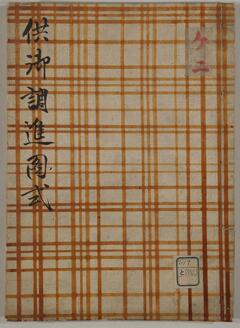 供御調進圖式
ケ二